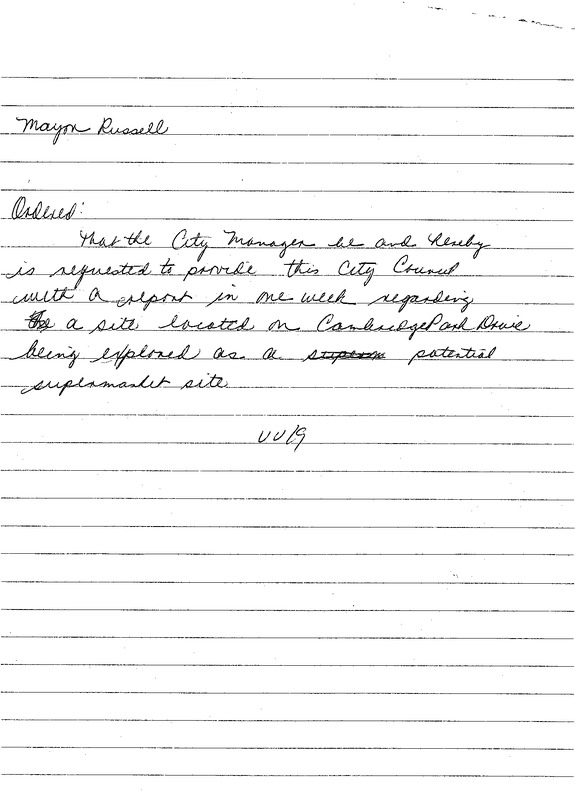 Mayor Russell
Ordered:
that the City Manager be and hereby
is requested to provide this City Council
with a report in one week regarding
the a site located on CambridgePark Drive
being explored as a superm potential
supermarket site